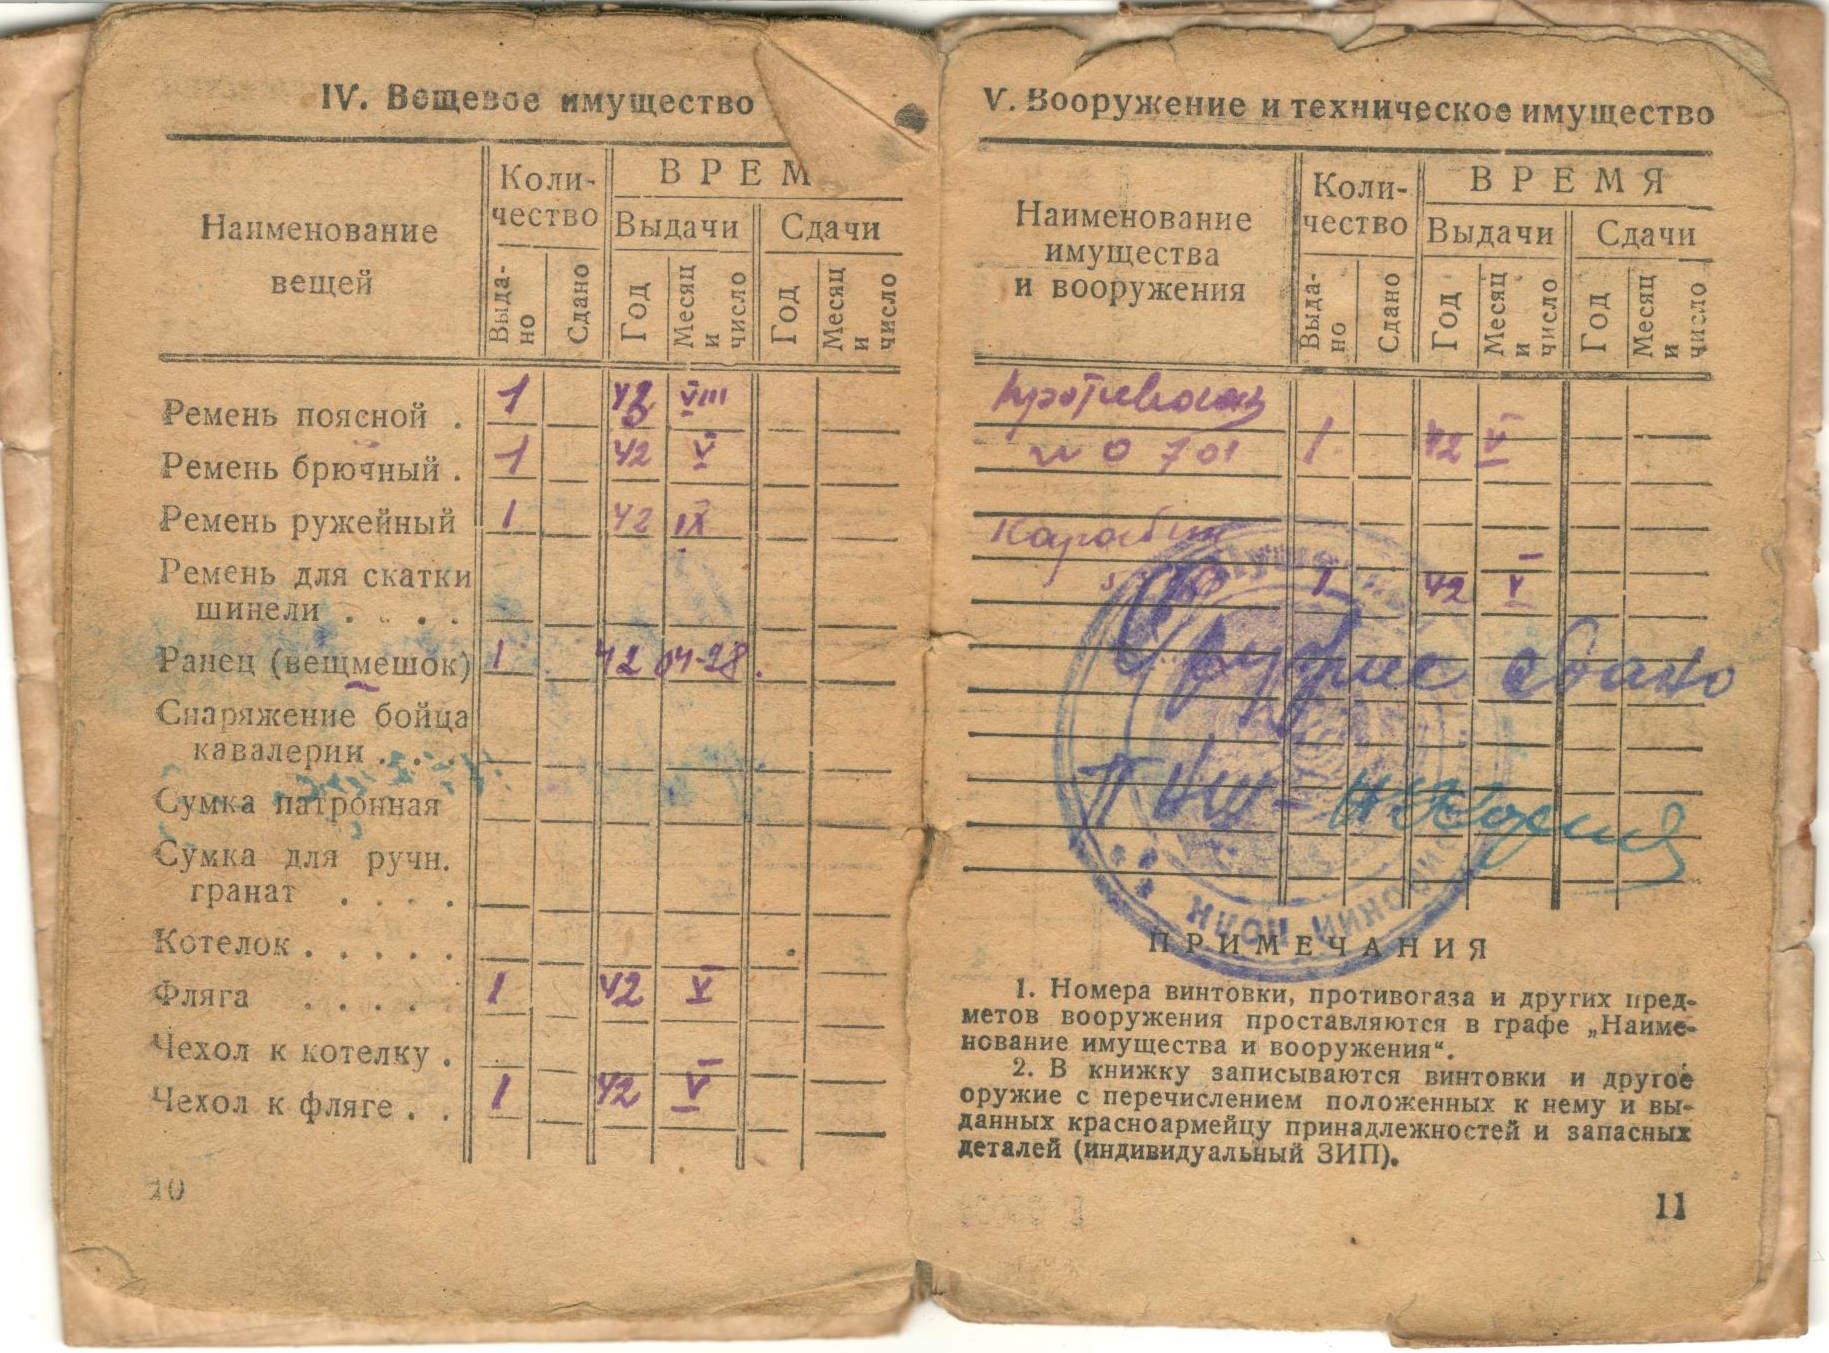 IV. Вещевое имущество
Наименование вещей
Коли-
чество
ВРЕМ
Выдачи
Сдачи
Выда-
но
Сдано
Год
Месяц
и
число
Год
Месяц
и
число
Ремень поясной . 1 42 VIII
Ремень брючный . 1 42 V
Ремень ружейный 1 42 IX
Ремень для скатки
шинели . . . .
Ранец (вещмешок) 1 42 04-28.
Снаряжение бойца
кавалерии . . .
Сумка патронная
Сумка для ручн.
гранат . . . .
Котелок . . . . .
Фляга . . . . 1 42 V
Чехол к котелку .
Чехол к фляге . . 1 42 V
10
V. Вооружение и техническое имущество
Наименование
имущества
и вооружения
Коли-
чество
ВРЕМЯ
Выдачи
Сдачи
Выда-
но
Сдано
Год
Месяц
и
число
Год
Месяц
и
число
Противогаз
№ 0701 1 42 V
Карабин
1 42 V
Оружие сдано
ПРИМЕЧАНИЯ
1. Номера винтовки, противогаза и других пред-
метов вооружения проставляются в графе „Наиме-
нование имущества и вооружения“.
2. В книжку записываются винтовки и другое
оружие с перечислением положенных к нему и вы-
данных красноармейцу принадлежностей и запасных
деталей (индивидуальный ЗИП).
11